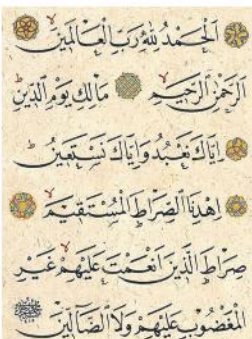 اَلْحَمْدُ لِلّٰهِ رَبِّ الْعَالَمِينَ
الرَّحْمٰنِ الرَّحِيمِ مَالِكِ يَوْمِ الدِّينِ
اِيَّاكَ نَعْبُدُ وَاِيَّاكَ نَسْتَعِينُ
اِهْدِنَا الصِّرَاطَ الْمُسْتَقِيمَ
صِرَاطَ الَّذِينَ اَنْعَمْتَ عَلَيْهِمْ غَيْرِ
الْمَغْضُوبِ عَلَيْهِمْ وَلَا الضَّالِّينَ